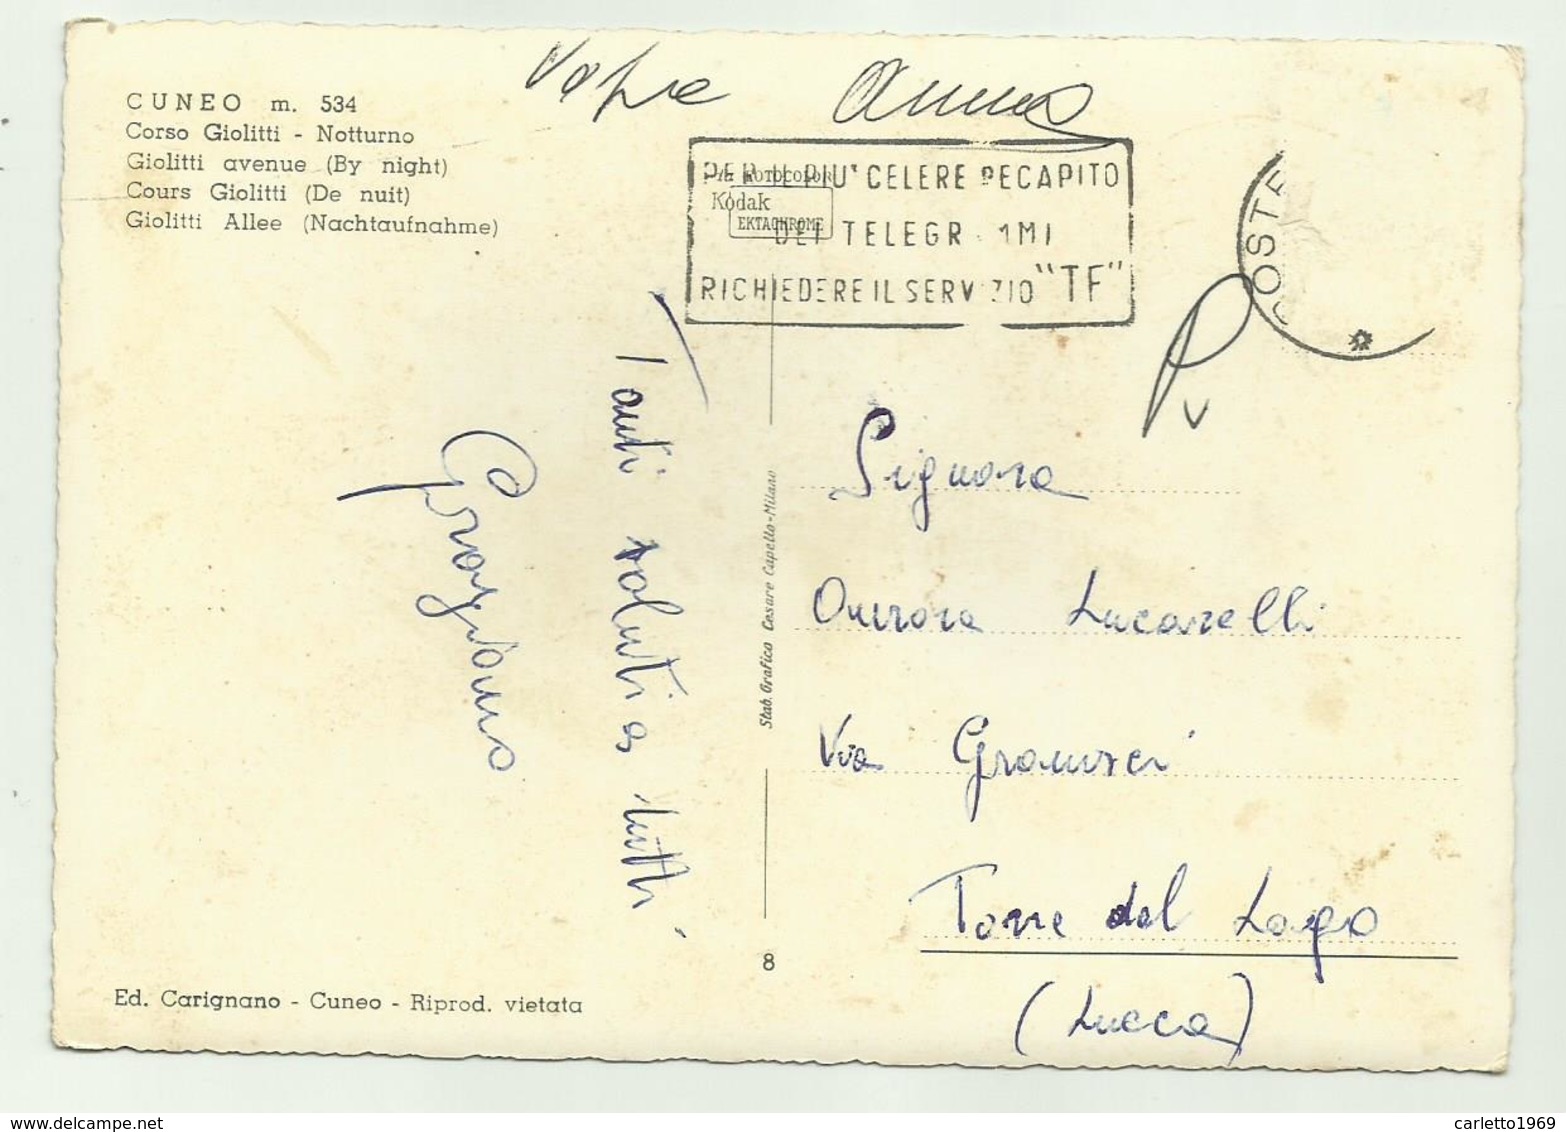 CUNEO m. 534
Corso Giolitti - Notturno
Giolitti avenue (By night)
Cours Giolitti (De nuit)
Giolitti Allee (Nachtaufnahme)
PER IL PIU' CELERE RECAPITO
DEI TELEGR MMI
RICHIEDERE IL SERVIZIO "TF"
ROTOCOLOR
Kodak
EKTACHROME
POSTE
Tanti saluti a tutti
Graziano
Stab. Grafico Cesare Capello-Milano
Signora
Aurora Lucarelli
Via Gramsci
Torre del Lago
(Lucca)
8
Ed. Carignano - Cuneo - Riprod. vietata
delcampe.net
carletto1969